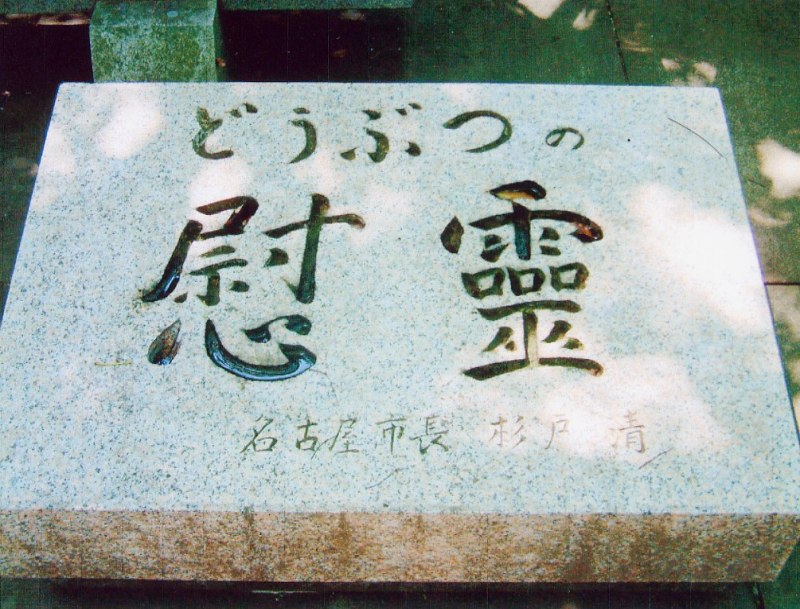 どうぶつの
慰靈
名古屋市長 杉戸 清